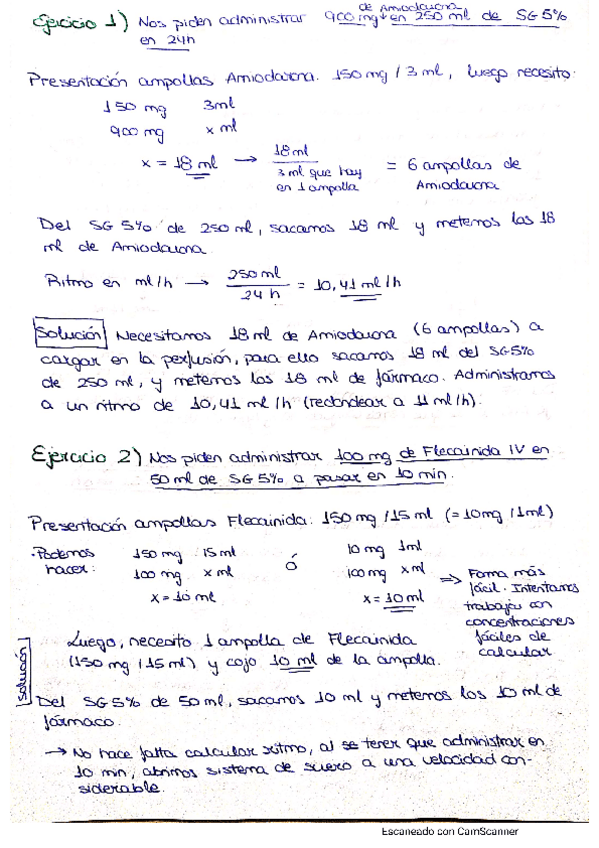 Ejercicio 1) Nos piden administrar 900 mg de Amiodarona en 250 ml de SG 5%
en 24h
Presentación ampollas Amiodarona: 150 mg / 3 ml, luego necesito:
150 mg 3ml
900 mg x ml
x = 18 ml → 18 ml / 3 ml que hay en 1 ampolla = 6 ampollas de Amiodarona
Del SG 5% de 250 ml, sacamos 18 ml y metemos los 18
ml de Amiodarona.
Ritmo en ml/h → 250 ml / 24 h = 10,41 ml/h
Solución Necesitamos 18 ml de Amiodarona (6 ampollas) a
cargar en la perfusión, para ello sacamos 18 ml del SG5%
de 250 ml, y metemos los 18 ml de fármaco. Administramos
a un ritmo de 10,41 ml/h (redondear a 11 ml/h).
Ejercicio 2) Nos piden administrar 100 mg de Flecainida IV en
50 ml de SG 5% a pasar en 10 min.
Presentación ampollas Flecainida: 150 mg / 15 ml (= 10mg / 1ml)
·Podemos hacer:
150 mg 15 ml
100 mg x ml
x = 10 ml
ó
10 mg 1ml
100 mg x ml
x = 10 ml
⇒ Forma más
fácil. Intentamos
trabajar con
concentraciones
fáciles de
calcular
Solución
Luego, necesito 1 ampolla de Flecainida
(150 mg / 15 ml) y cojo 10 ml de la ampolla.
Del SG 5% de 50 ml, sacamos 10 ml y metemos los 10 ml de
fármaco.
→ No hace falta calcular ritmo, al se tener que administrar en
10 min, abrimos sistema de suero a una velocidad con-
siderable.
Escaneado con CamScanner